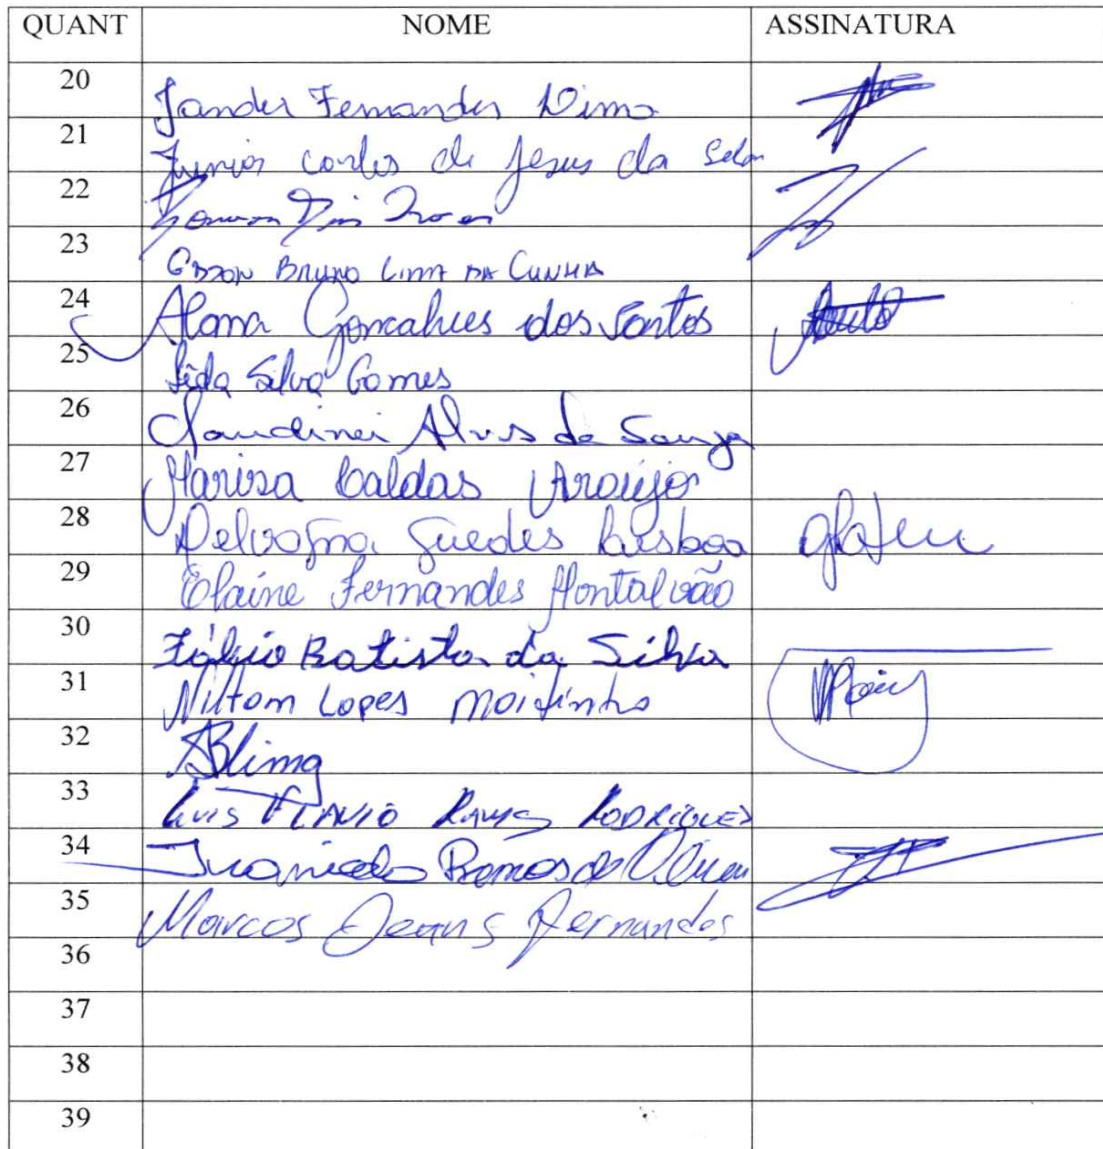 QUANT NOME ASSINATURA
20 Jander Fernandes Dima
21 Junior Carlos de Jesus da Selva
22
23 Edson Bruno Lima da Cunha
24 Alana Goncalves dos Santos
25 Lêda Silva Gomes
26 Claudinei Alves de Souza
27 Mariza Caldas Araújo
28 Guedes Lisboa
29 Elaine Fernandes Montalvão
30 Fábio Batista da Silva
31 Niltom Lopes Moitinho
32 ABlima
33 Luis Flavio Ramos Rodrigues
34 Ramos de Oliveira
35 Marcos Jeans Fernandes
36
37
38
39